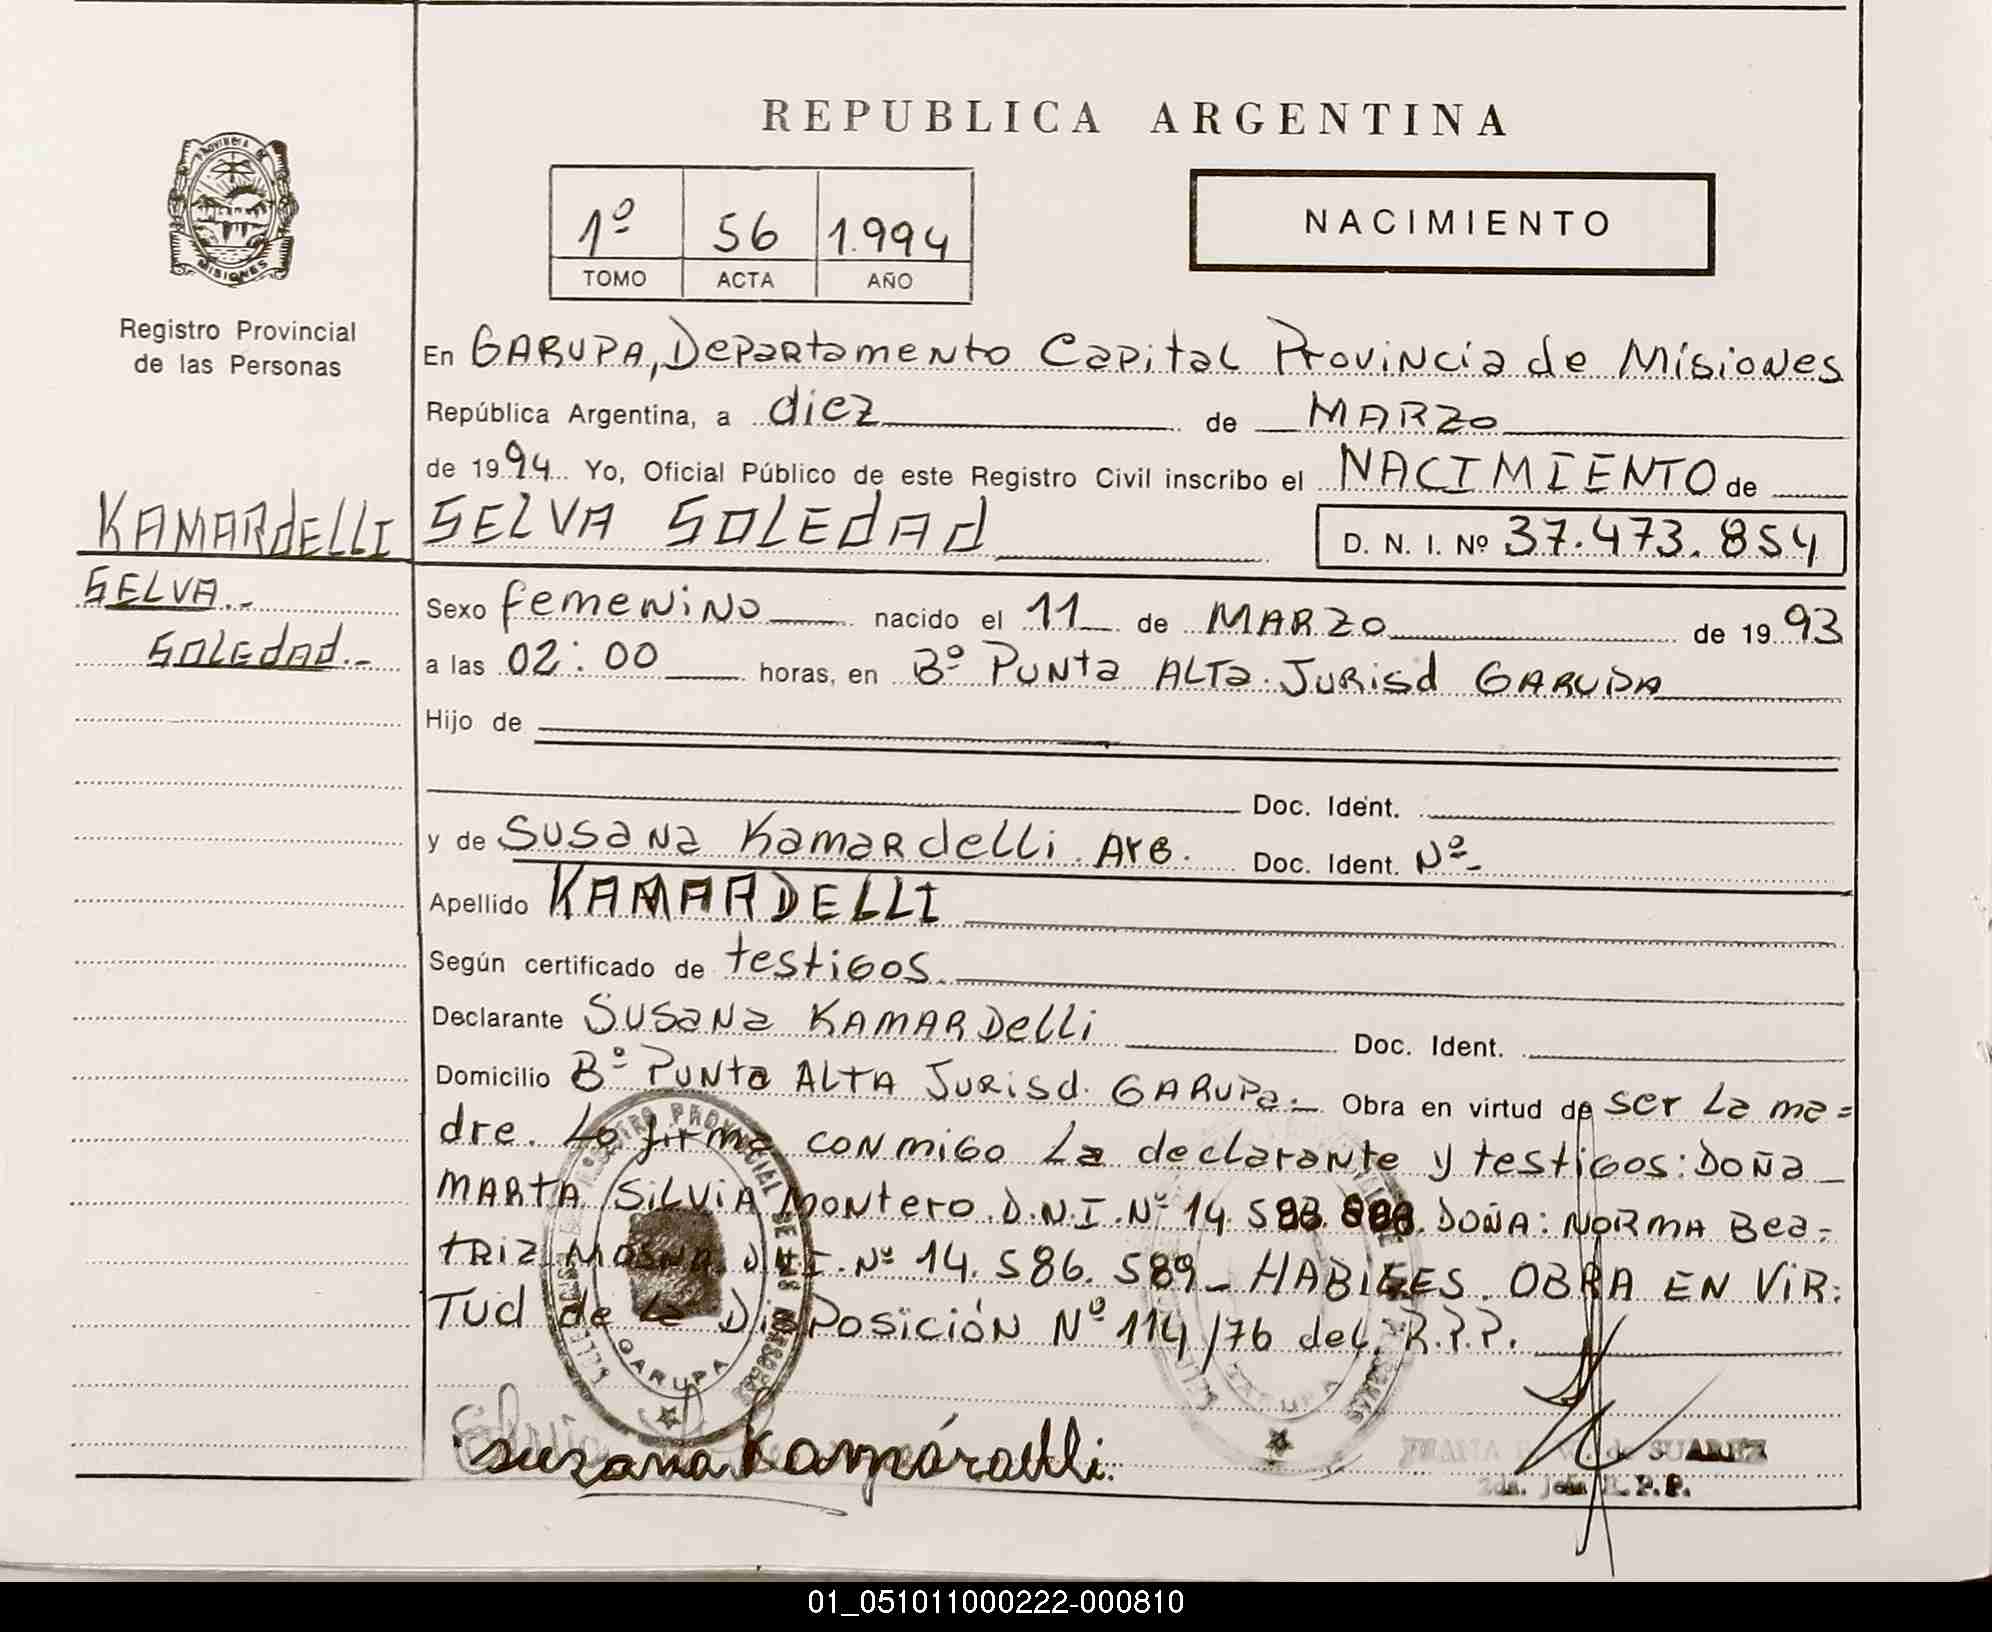 REPUBLICA ARGENTINA
PROVINCIA DE
MISIONES
Registro Provincial
de las Personas
1º 56 1.994
TOMO ACTA AÑO
NACIMIENTO
En GARUPA, Departamento Capital Provincia de Misiones
República Argentina, a diez de MARZO
de 1994 Yo, Oficial Público de este Registro Civil inscribo el NACIMIENTO de
KAMARdELLI SELVA SOLEdAd D. N. I. Nº 37.473.854
SELVA.-
SOLEdAd.-
Sexo femenino nacido el 11 de MARZO de 1993
a las 02:00 horas, en Bº Punta ALTa. Jurisd GARUPA
Hijo de
Doc. Ident.
y de Susana Kamardelli. Arg. Doc. Ident. Nº-
Apellido KAMARDELLI
Según certificado de testigos.
Declarante Susana KAMARDelli Doc. Ident.
Domicilio Bº Punta ALTA Jurisd. GARUPa.- Obra en virtud de ser La ma=
dre. Lo firma conmigo La declarante y testigos: Doña
MARTA SiLViA Montero. D.N.I. Nº 14.5 DOÑA: NORMA Bea=
TRIZ D.N.I. Nº 14.586.589- HABILES. OBRA EN VIR=
TUd de La DisPosición Nº 114/76 del. R.P.P.
REGISTRO PROVINCIAL DE LAS PERSONAS
GARUPA
GARUPA
suzana Kamárdelli.
de SUAREZ
R.P.P.
01_051011000222-000810